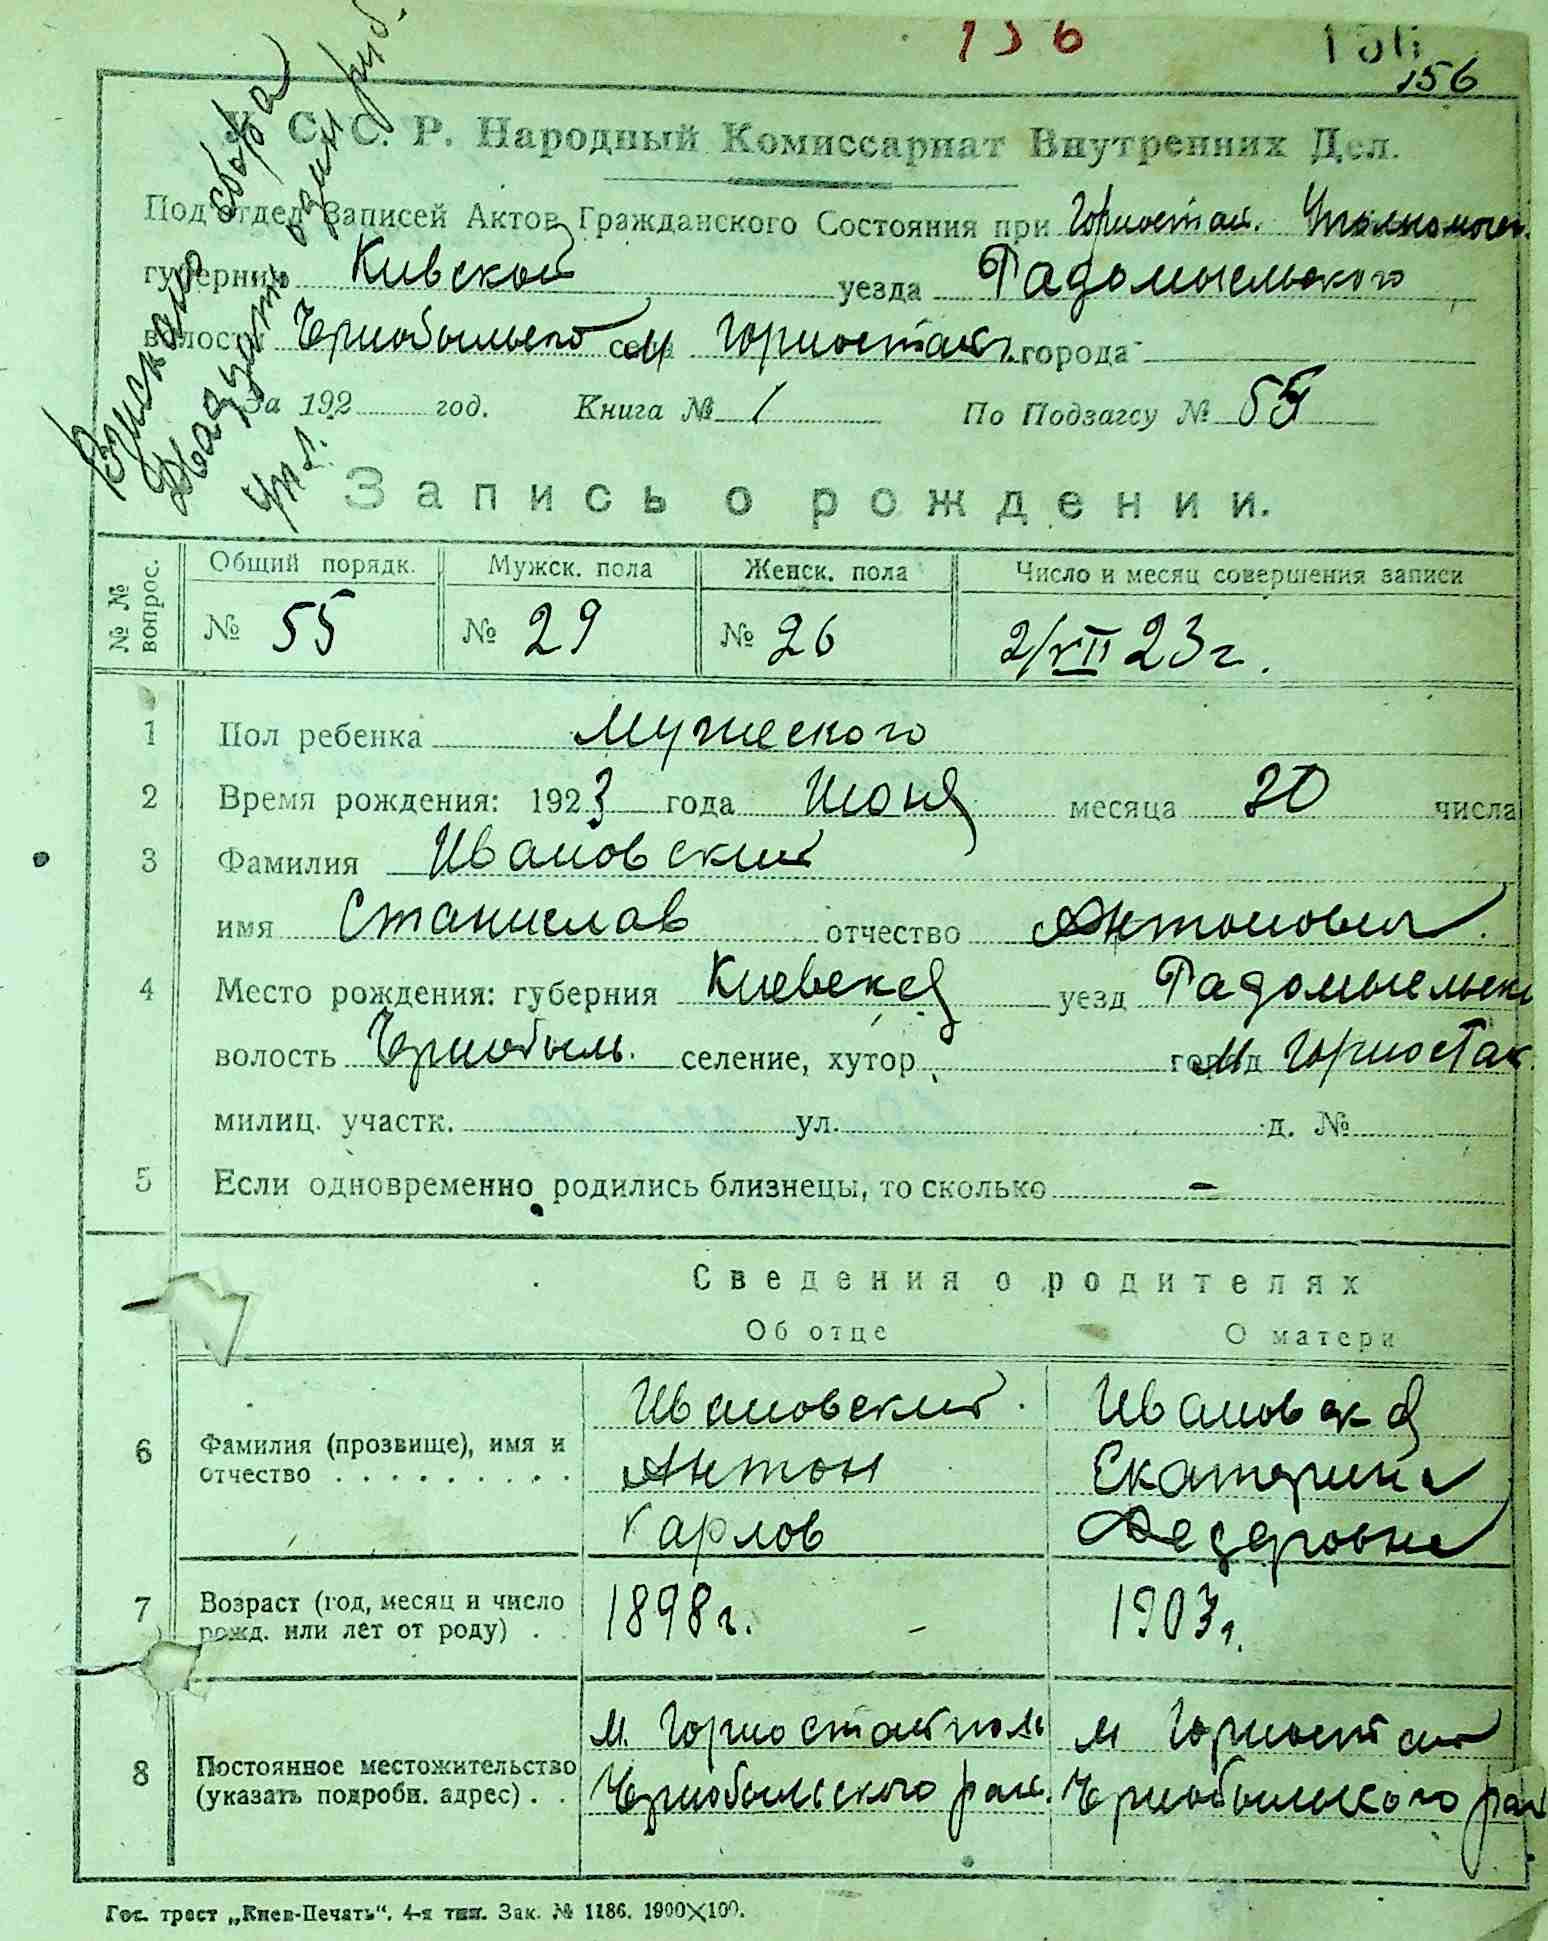 136
156
156
Взыскано сбора
двадцать один руб.
С. С. Р. Народный Комиссариат Внутренних Дел.
Под'отдел Записей Актов Гражданского Состояния при Горностай.
губернии Кивской уезда Радомысльского
волости Чернобыльско села м Горностай. города
За 192 год. Книга № 1 По Подзагсу № 55
Запись о рождении.
№ № вопрос. Общий порядк. Мужск. пола Женск. пола Число и месяц совершения записи
№ 55 № 29 № 26 2/XII 23 г.
1 Пол ребенка Мужеского
2 Время рождения: 1923 года Июня месяца 20 числа
3 Фамилия Ивановский
имя Станислав отчество Антонович
4 Место рождения: губерния Киевская уезд Радомысльск
волость Чернобыль. селение, хутор город м Горностай
милиц. участк. ул. д. №
5 Если одновременно родились близнецы, то сколько -
Сведения о родителях
Об отце О матери
6 Фамилия (прозвище), имя и отчество . . . . . . . . . .
Ивановский Ивановская
Антон Екатерина
Карлов Федоровна
7 Возраст (год, месяц и число рожд. или лет от роду) . .
1898 г. 1903 г.
8 Постоянное местожительство (указать подробн. адрес) . .
м. Горностайполь м Горностай
Чернобыльского рай. Чернобыльского рай
Гос. трест „Киев-Печать“. 4-я тип. Зак. № 1186. 1900×100.